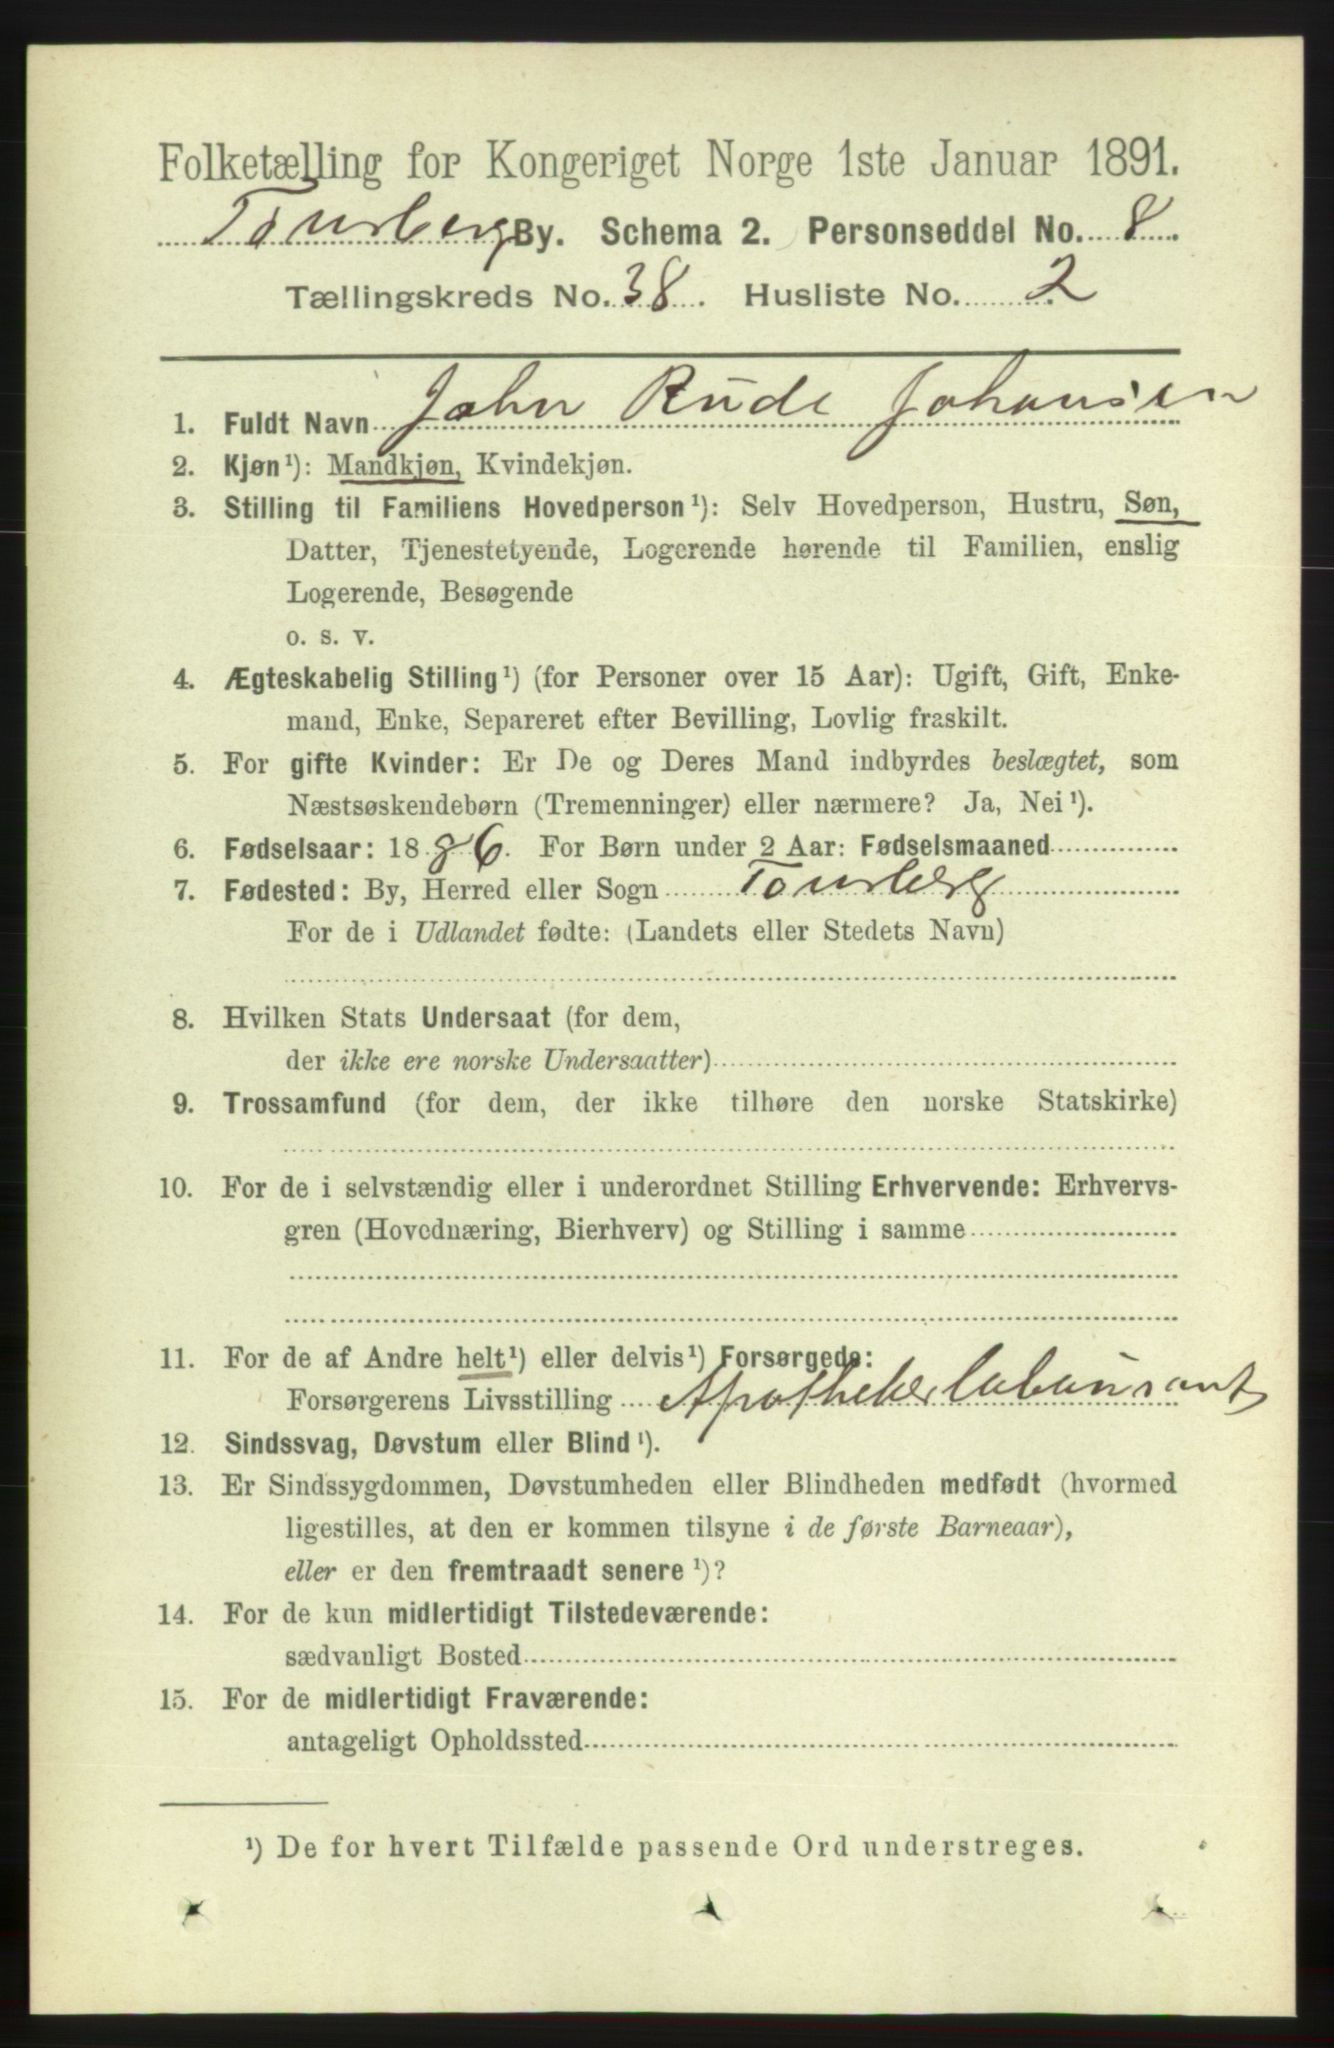 Folketælling for Kongeriget Norge 1ste Januar 1891.
Tønsberg By. Schema 2. Personseddel No. 8.
Tællingskreds No. 38. Husliste No. 2
1. Fuldt Navn John Rude Johansen
2. Kjøn¹): Mandkjøn, Kvindekjøn.
3. Stilling til Familiens Hovedperson¹): Selv Hovedperson, Hustru, Søn,
Datter, Tjenestetyende, Logerende hørende til Familien, enslig
Logerende, Besøgende
o. s. v.
4. Ægteskabelig Stilling¹) (for Personer over 15 Aar): Ugift, Gift, Enke-
mand, Enke, Separeret efter Bevilling, Lovlig fraskilt.
5. For gifte Kvinder: Er De og Deres Mand indbyrdes beslægtet, som
Næstsøskendebørn (Tremenninger) eller nærmere? Ja, Nei¹).
6. Fødselsaar: 1886. For Børn under 2 Aar: Fødselsmaaned
7. Fødested: By, Herred eller Sogn Tønsberg
For de i Udlandet fødte: (Landets eller Stedets Navn)
8. Hvilken Stats Undersaat (for dem,
der ikke ere norske Undersaatter)
9. Trossamfund (for dem, der ikke tilhøre den norske Statskirke)
10. For de i selvstændig eller i underordnet Stilling Erhvervende: Erhvervs-
gren (Hovednæring, Bierhverv) og Stilling i samme
11. For de af Andre helt¹) eller delvis¹) Forsørgede:
Forsørgerens Livsstilling Apotheker laborant
12. Sindssvag, Døvstum eller Blind¹).
13. Er Sindssygdommen, Døvstumheden eller Blindheden medfødt (hvormed
ligestilles, at den er kommen tilsyne i de første Barneaar),
eller er den fremtraadt senere¹)?
14. For de kun midlertidigt Tilstedeværende:
sædvanligt Bosted
15. For de midlertidigt Fraværende:
antageligt Opholdssted
¹) De for hvert Tilfælde passende Ord understreges.